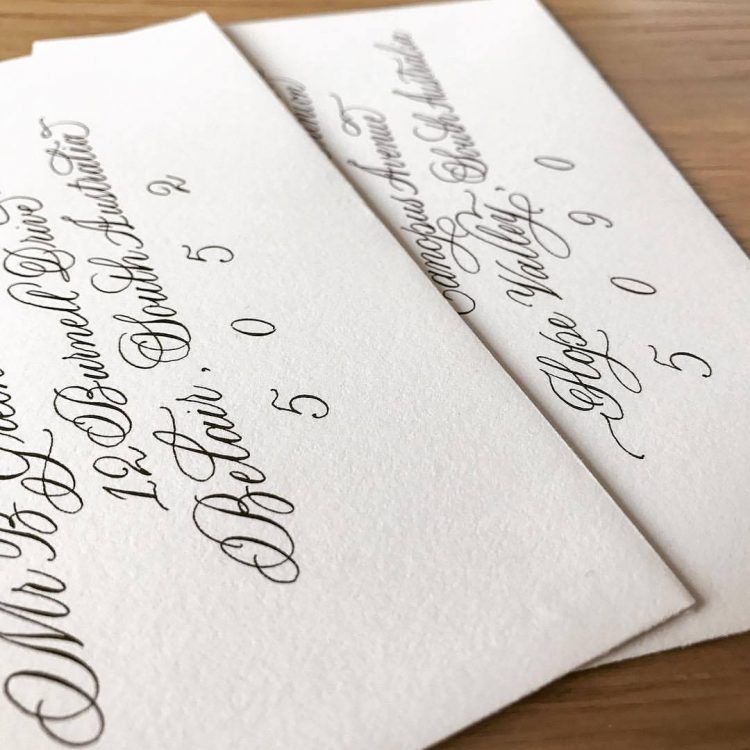 Mr B Green
12 Burnell Drive
Belair, South Australia
5 0 5 2
Canopus Avenue
Hope Valley, South Australia
5 0 9 0